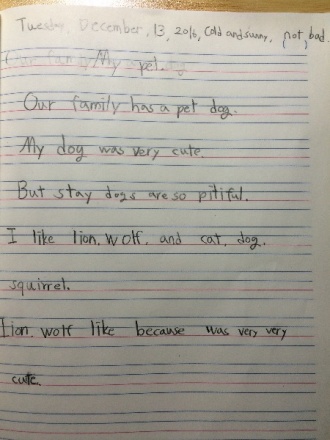 Tuesday, December, 13, 2016, Cold and sunny, not bad.
My pet.
Our family has a pet dog.
My dog was very cute.
But stay dogs are so pitiful.
I like lion, wolf, and cat, dog,
squirrel.
Lion wolf like because was very very
cute.